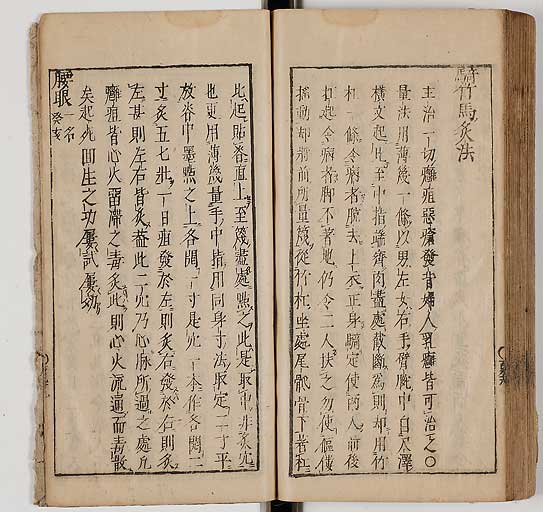 騎竹馬灸法
主治一切癰疽惡瘡發背婦人乳癰皆可治之〇
量法用薄篾一條以男左女右手臂腕中自尺澤
横文起比至中指端齊肉盡處截斷為則却用竹
杠一條令病者脫去上衣正身騎定使兩人前後
扛起令病者脚不著地仍令二人扶之勿使傴僂
揺動却將前所量篾從竹杠坐處尾骶骨下著杠
比起貼脊直上至篾盡處㸃之此是取中非灸穴
也更用薄篾量手中指用同身寸法取定一寸平
放脊中墨㸃之上各開一寸是穴一本作各開二
寸灸五七壯一日疽發於左則灸右發於右則灸
左甚則左右皆灸葢此二穴乃心脉所過之處凡
癰疽皆心火畱滯之毒灸此則心火流通而毒散
矣起死回生之功屢試屢効
腰眼 一名癸亥